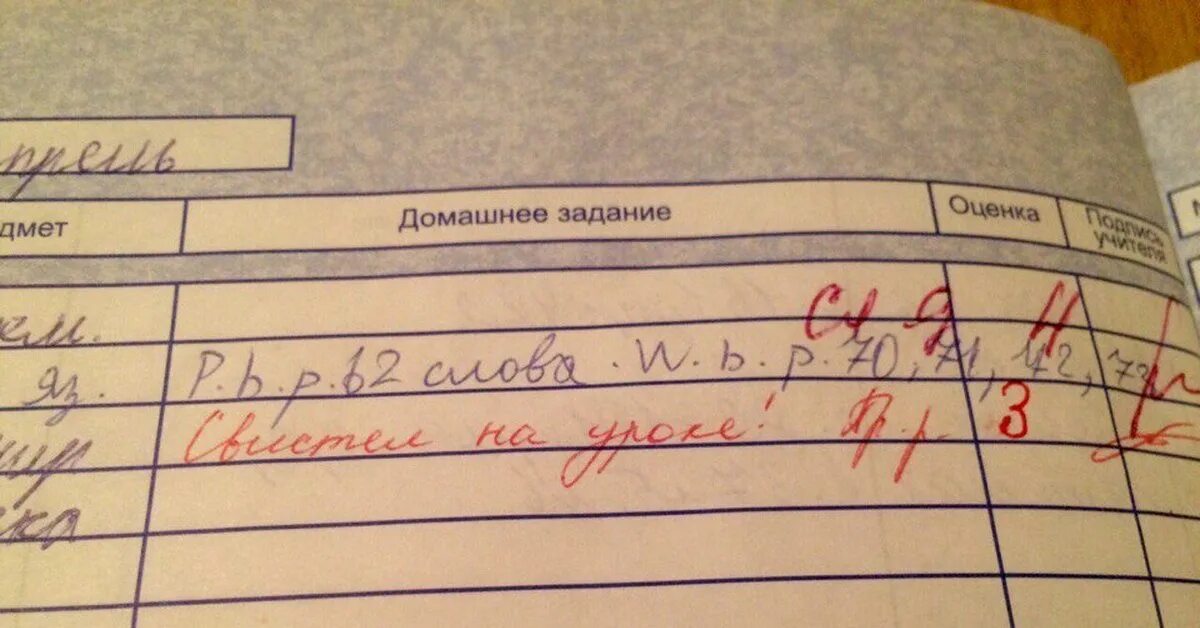 прель
дмет Домашнее задание Оценка Подпись учителя
н
яз. P.b.p.62 слова. W.b.p.70, 71, 72, 73
Свистел на уроке! Пр.р. 3
ка